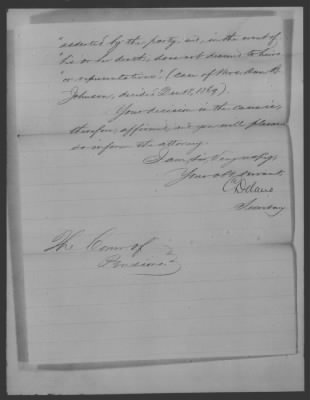 "asserted by the party, and, in the event of
"his or her death, does not descend to heirs
"or representatives". (Case of Mrs. Ann B.
Johnson, decided Dec. 18, 1869).
Your decision in the case is,
therefore, affirmed, and you will please
so inform the attorney.
I am, Sir, Very resp'y,
Your obt. servant,
C Delano
Secretary
The Comr of
Pensions